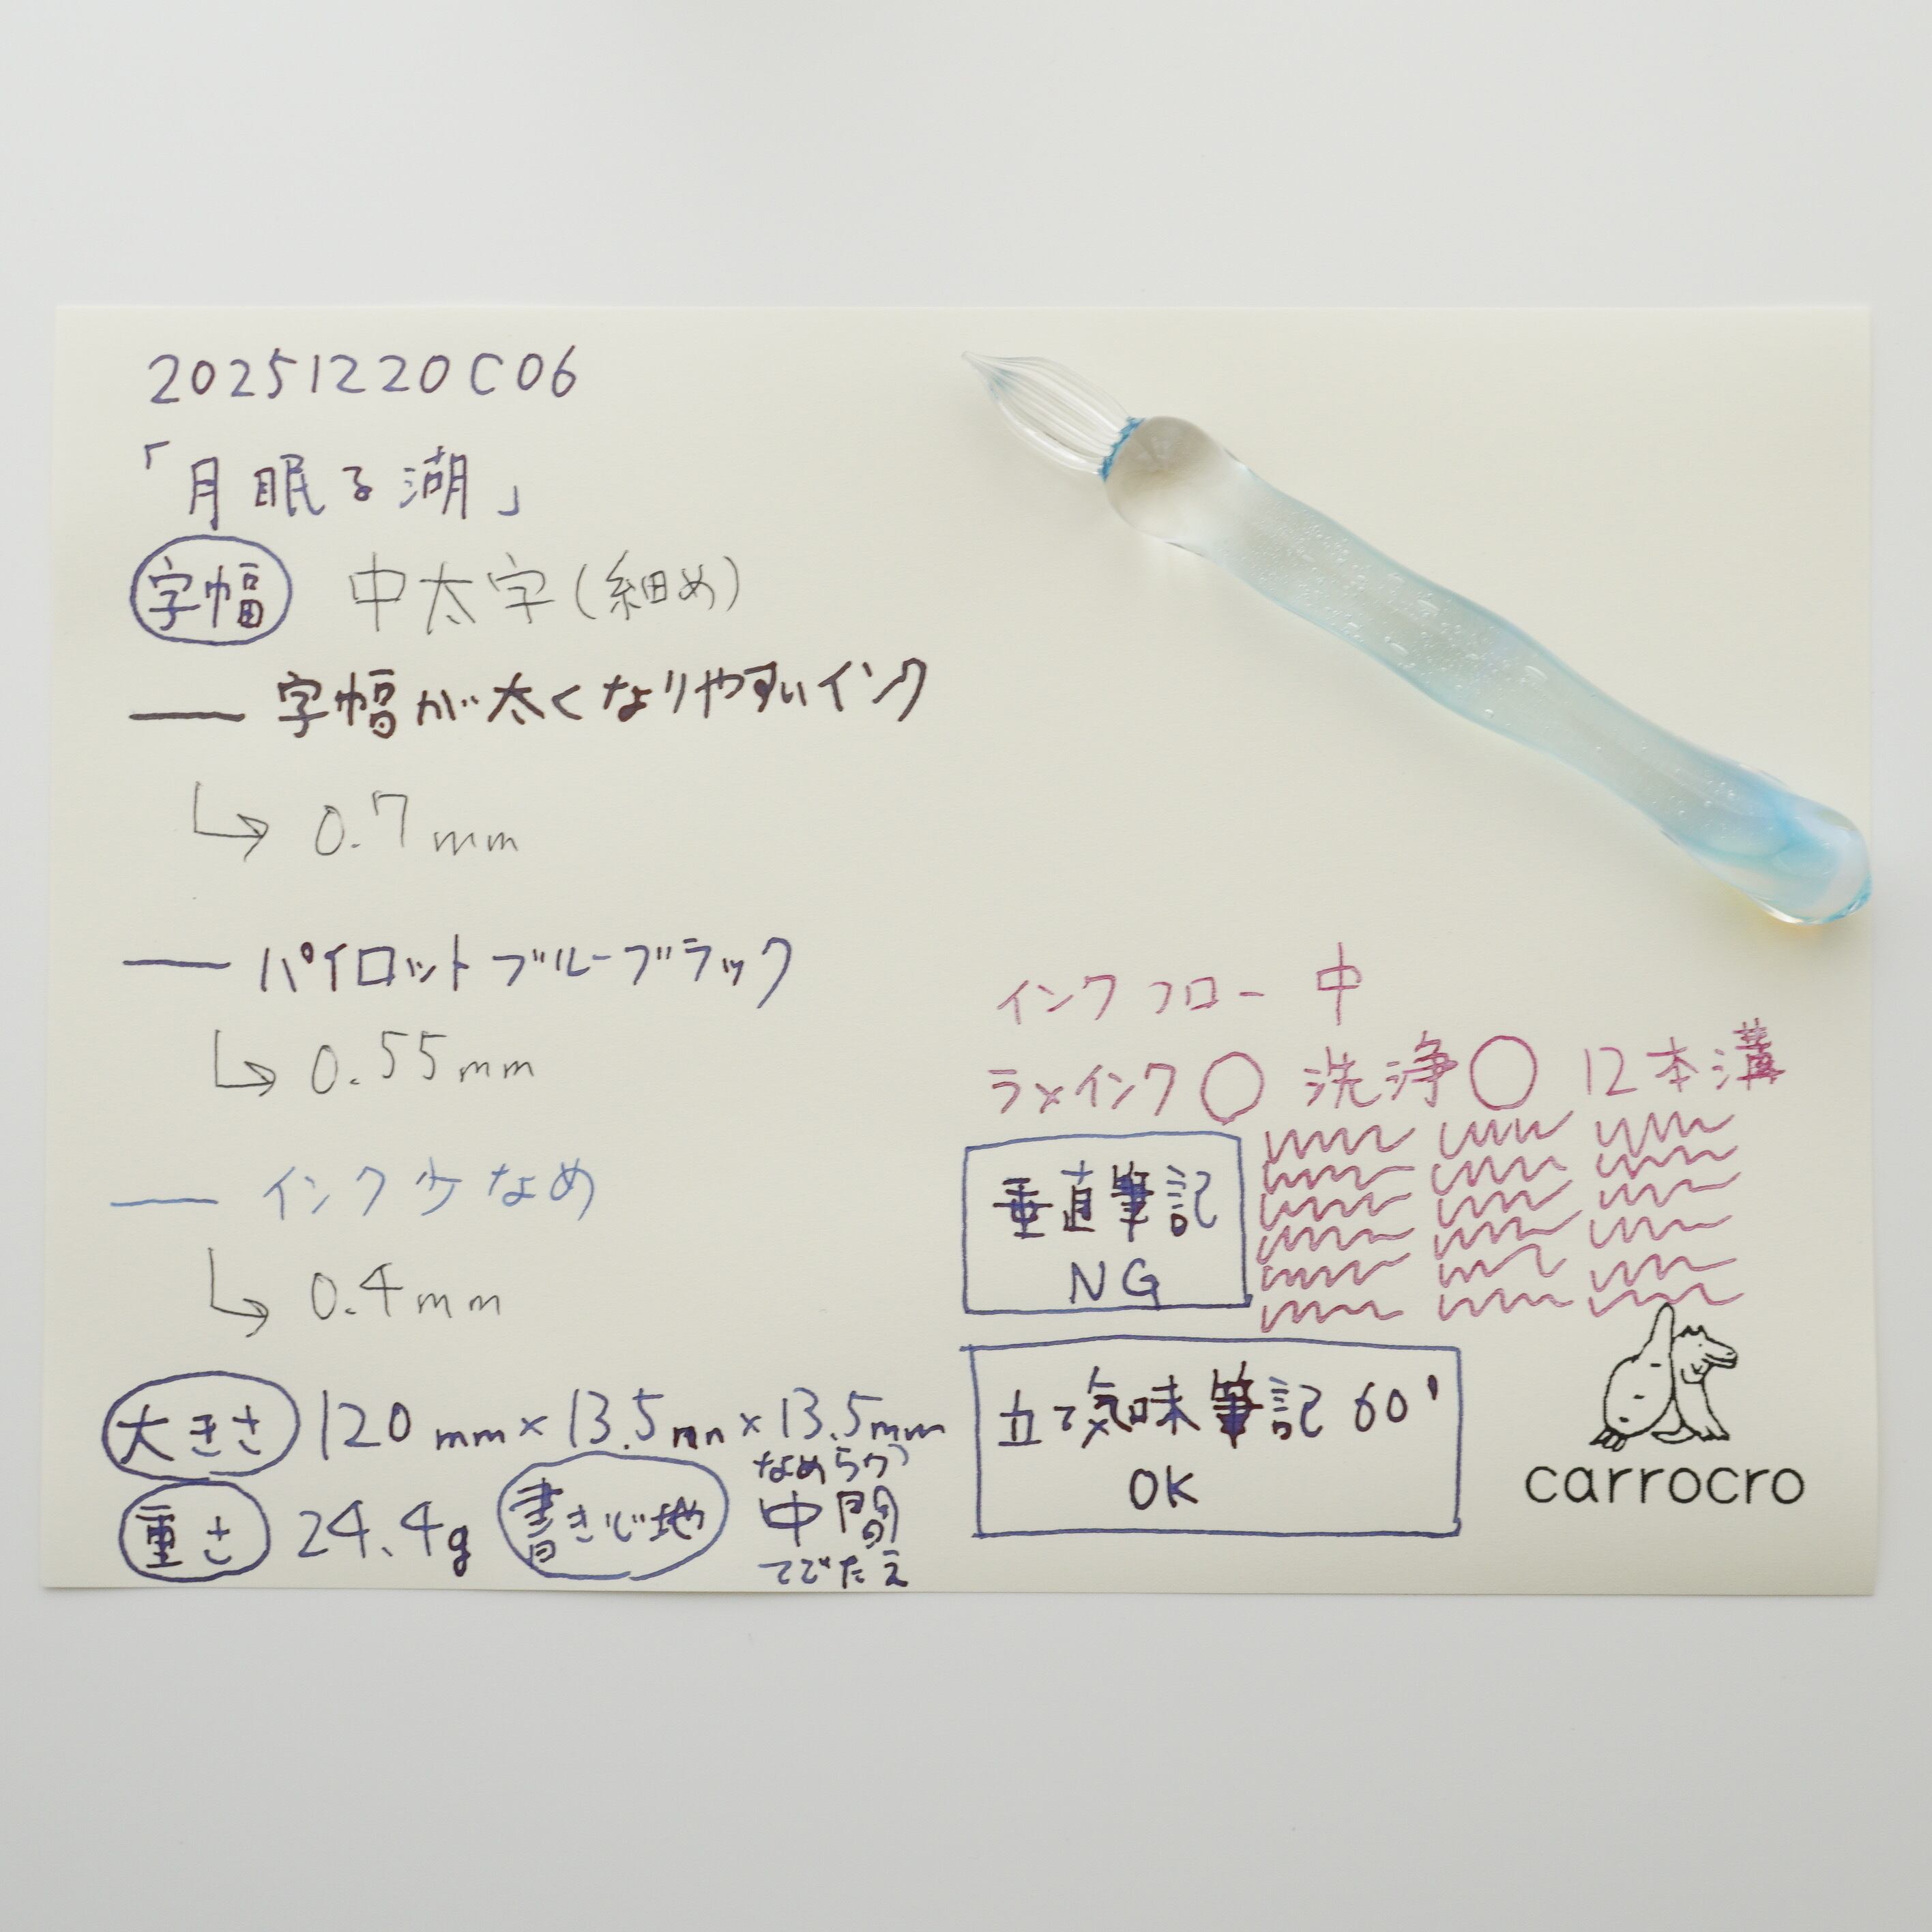 20251220C06
「月眠る湖」
字幅 中太字(細め)
字幅が太くなりやすいインク
0.7mm
パイロットブルーブラック
0.55mm
インク少なめ
0.4mm
大きさ 120mm×13.5mm×13.5mm
重さ 24.4g 書きじ地 なめらか
中間
てごたえ
インクフロー 中
ラメインク〇 洗浄〇 12本溝
垂直筆記
NG
立て気味筆記60'
OK
carrocro